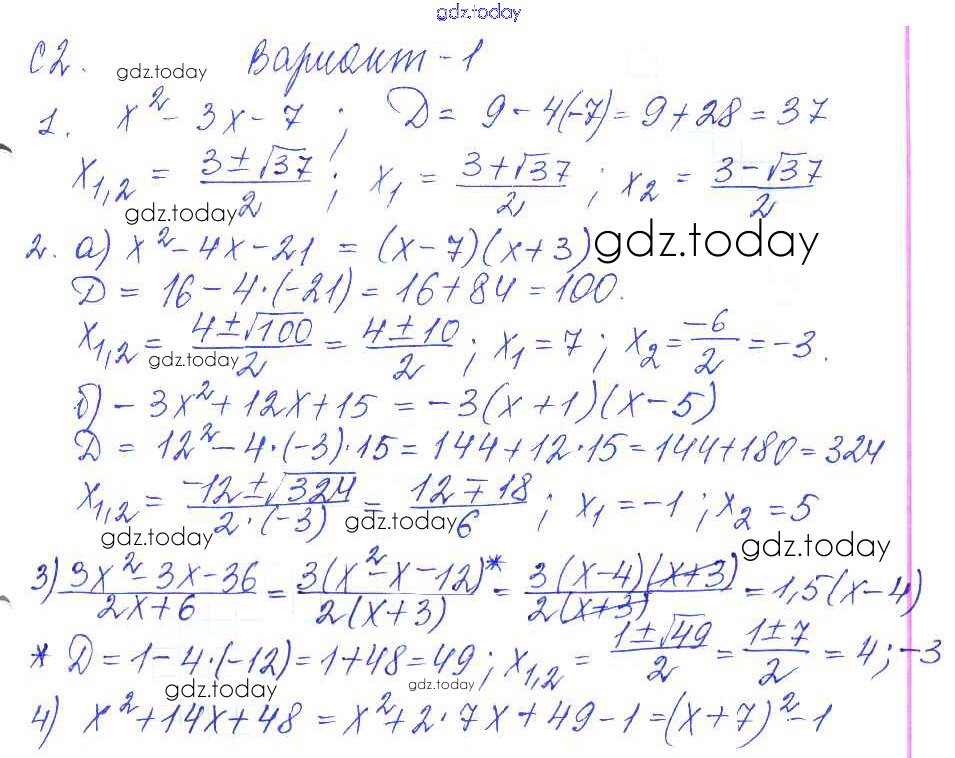 gdz.today
С2. gdz.today Вариант-1
1. x² - 3x - 7 ; Д = 9 - 4(-7) = 9 + 28 = 37
x₁,₂ = (3 ± √37)/2 ; x₁ = (3 + √37)/2 ; x₂ = (3 - √37)/2
gdz.today
2. а) x² - 4x - 21 = (x - 7)(x + 3) gdz.today
Д = 16 - 4·(-21) = 16 + 84 = 100.
x₁,₂ = (4 ± √100)/2 = (4 ± 10)/2 ; x₁ = 7 ; x₂ = -6/2 = -3.
gdz.today
б) - 3x² + 12x + 15 = -3(x + 1)(x - 5)
Д = 12² - 4·(-3)·15 = 144 + 12·15 = 144 + 180 = 324
x₁,₂ = (-12 ± √324)/(2·(-3)) = (12 ∓ 18)/6 ; x₁ = -1 ; x₂ = 5
gdz.today gdz.today gdz.today
3) (3x² - 3x - 36)/(2x + 6) = 3(x² - x - 12)*/(2(x + 3)) = 3(x - 4)(x + 3)/(2(x + 3)) = 1,5(x - 4)
* Д = 1 - 4·(-12) = 1 + 48 = 49 ; x₁,₂ = (1 ± √49)/2 = (1 ± 7)/2 = 4 ; -3
gdz.today gdz.today gdz.today
4) x² + 14x + 48 = x² + 2·7x + 49 - 1 = (x + 7)² - 1